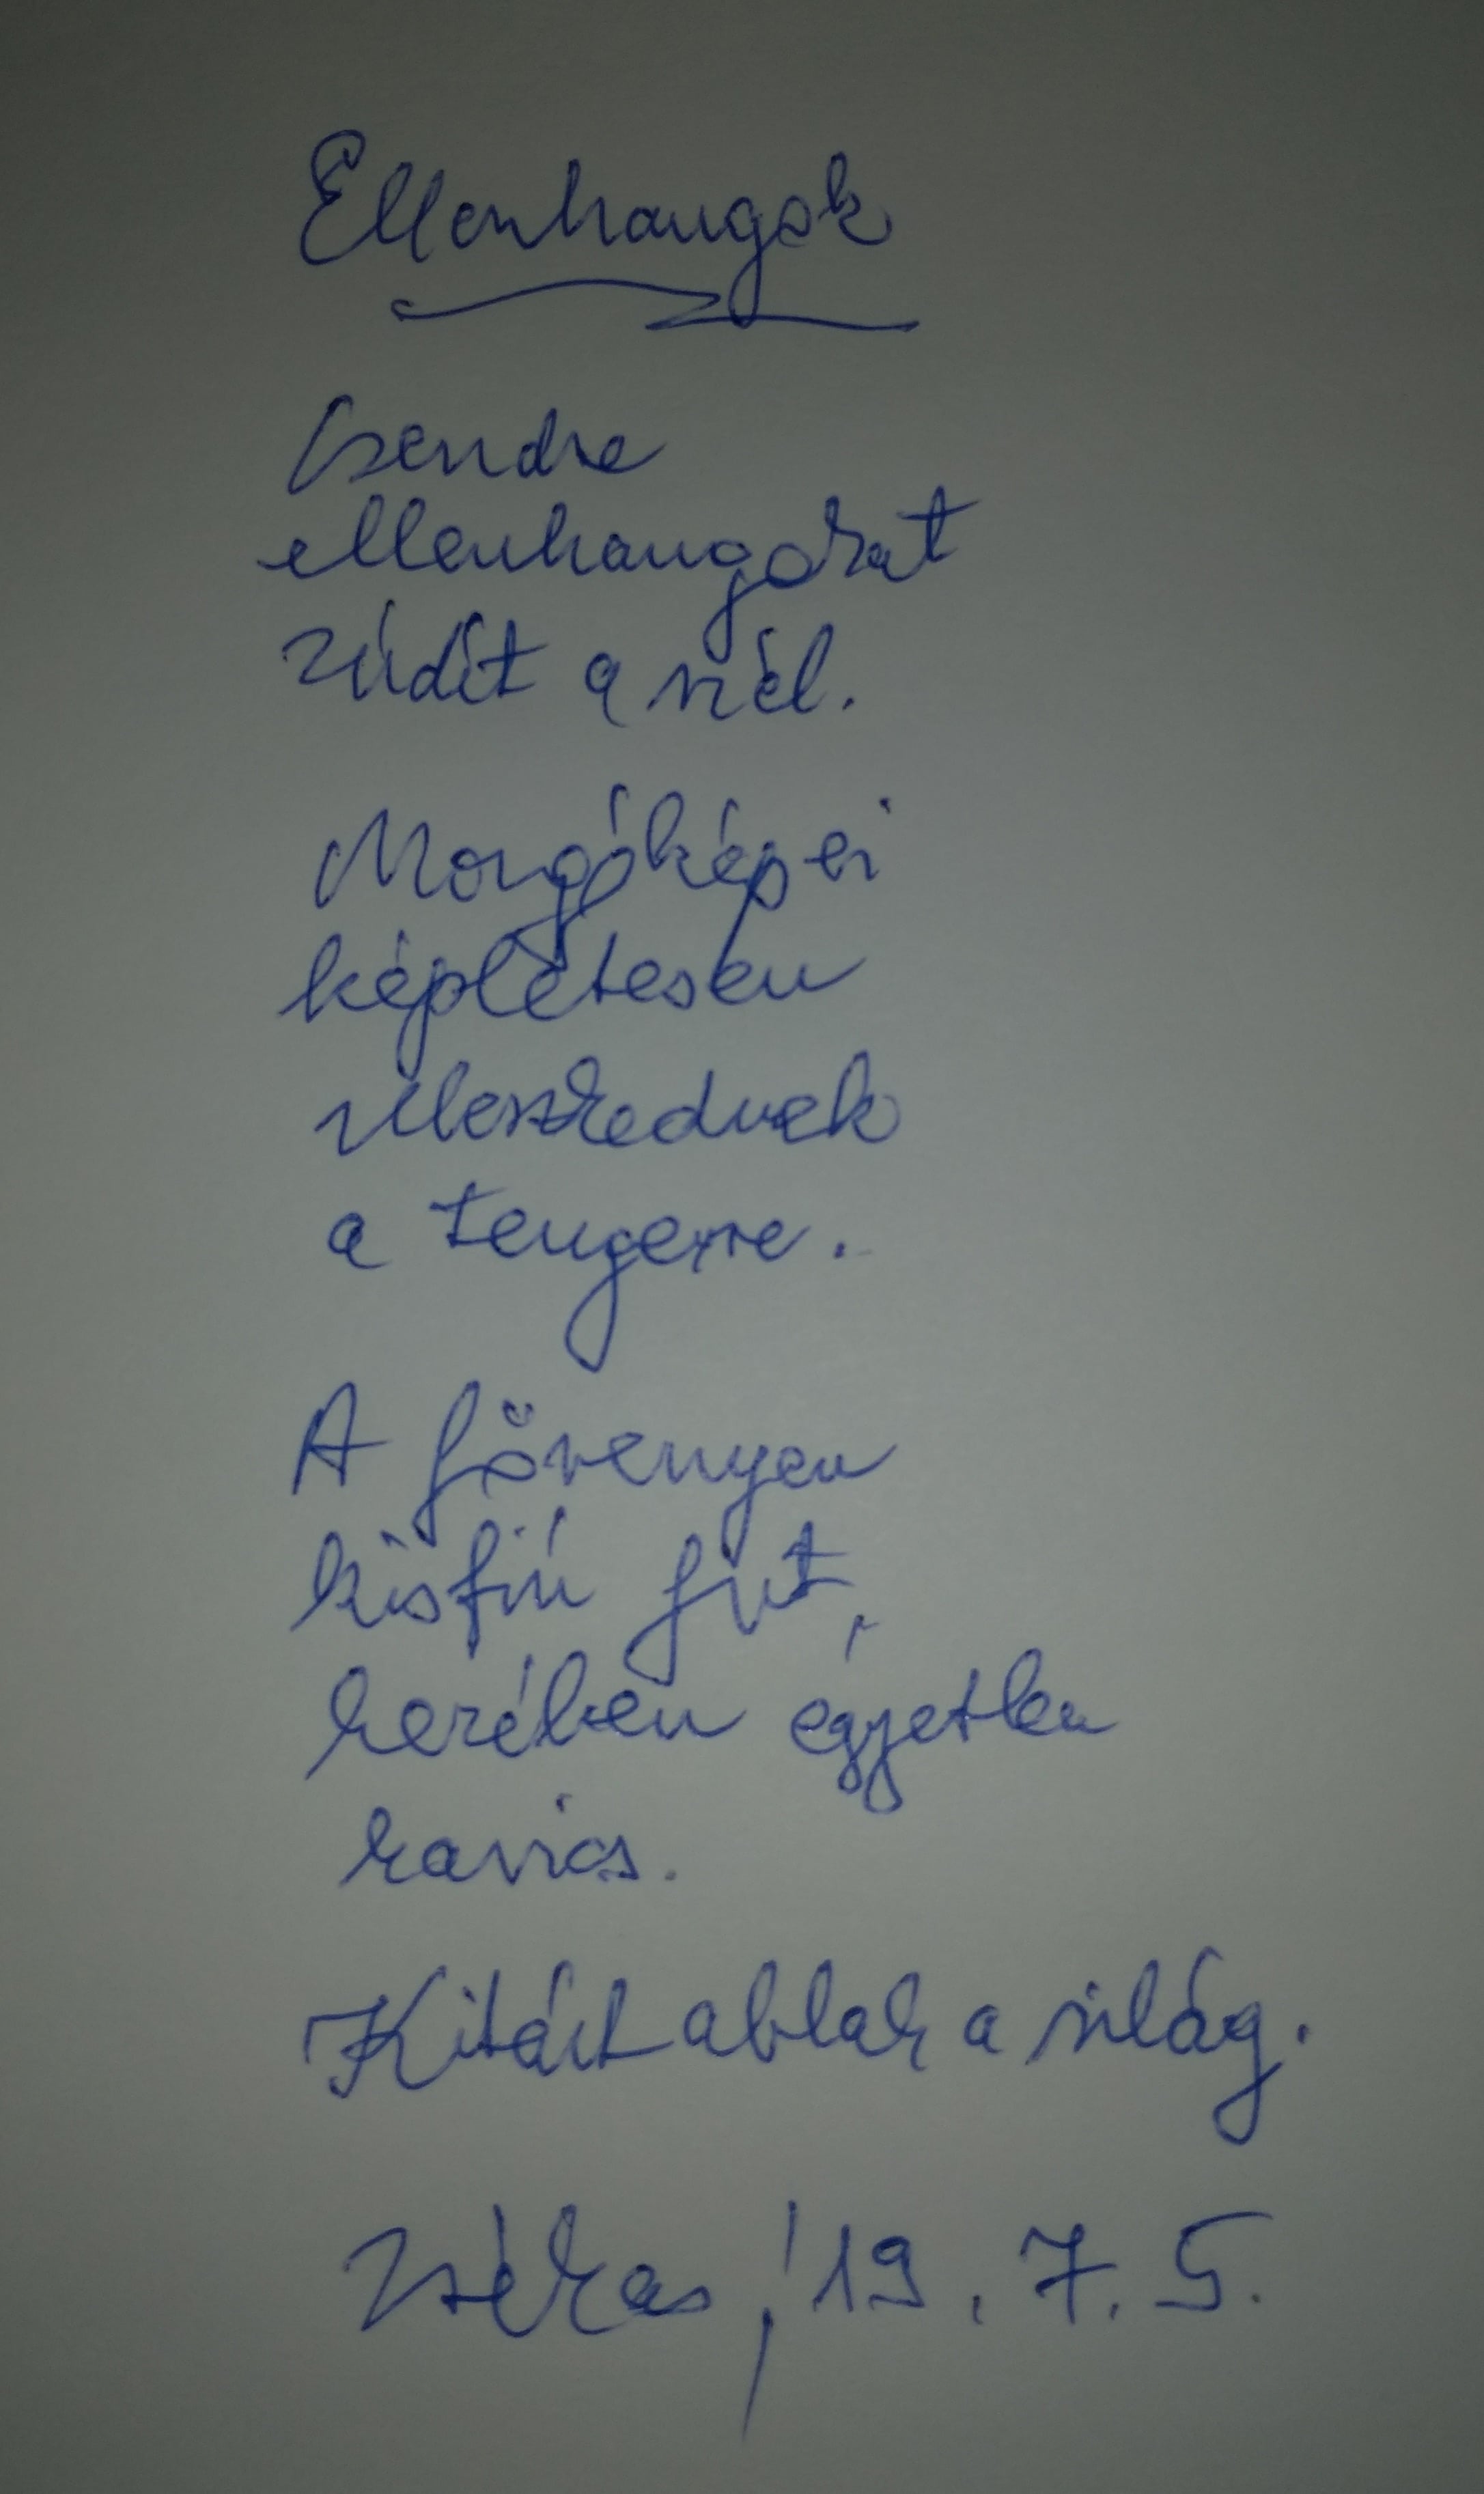 Ellenhangok
Csendre
ellenhangokat
zúdít a szél.
Mozgóképei
képletesen
illeszkednek
a tengerre.
A fövenyen
kisfiú fut,
kezében egyetlen
kavics.
Kitárt ablak a világ.
'19. 7. 5.